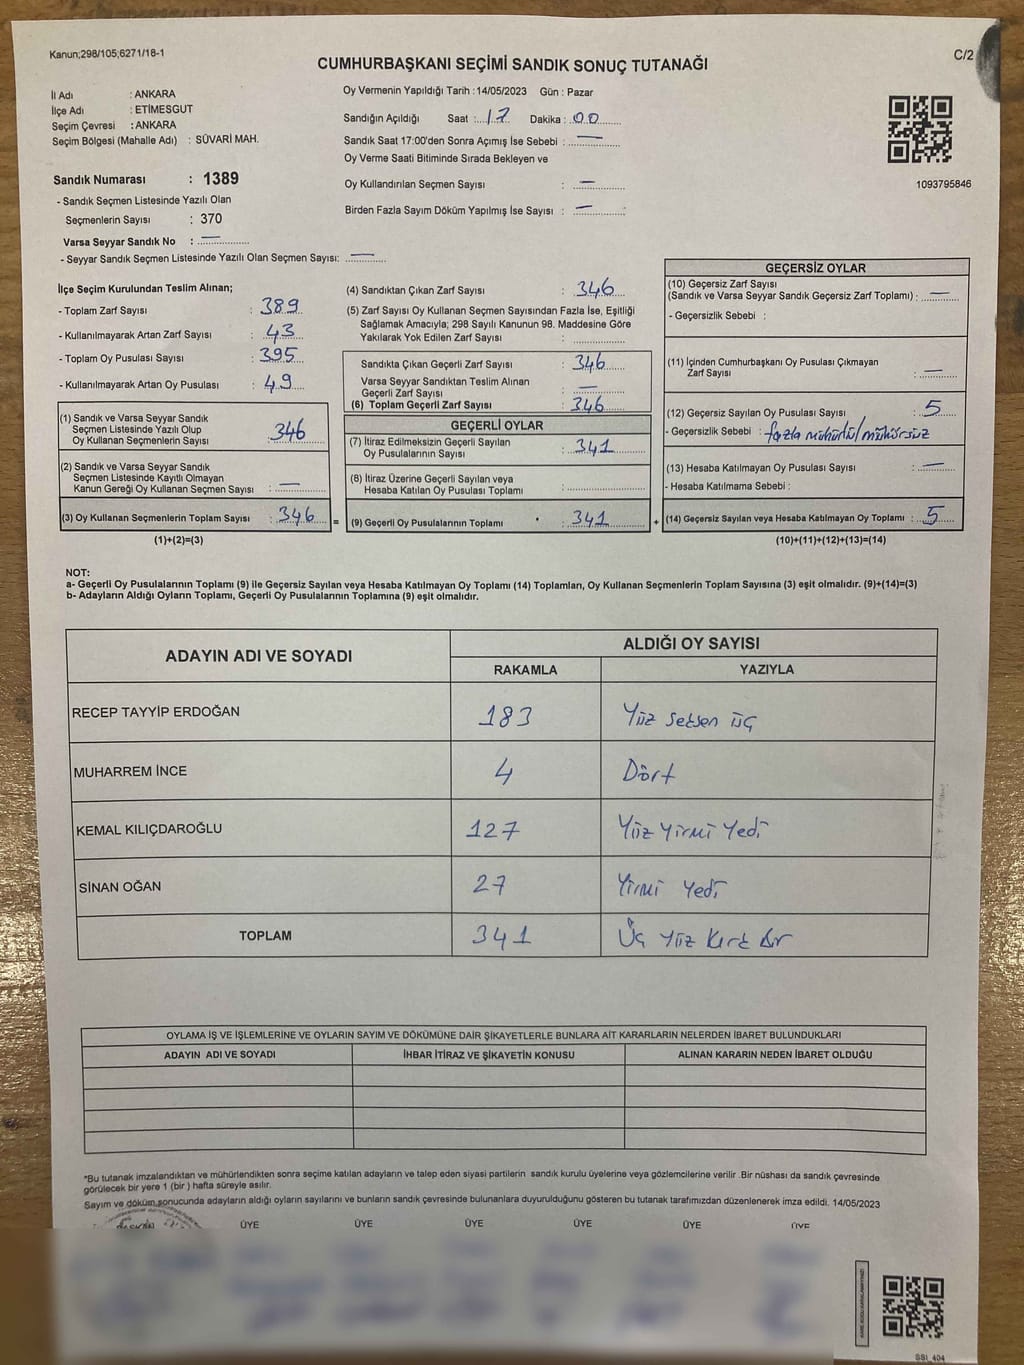 Kanun;298/105;6271/18-1
C/2
CUMHURBAŞKANI SEÇİMİ SANDIK SONUÇ TUTANAĞI
İl Adı : ANKARA
İlçe Adı : ETİMESGUT
Seçim Çevresi : ANKARA
Seçim Bölgesi (Mahalle Adı) : SÜVARİ MAH.
Sandık Numarası : 1389
- Sandık Seçmen Listesinde Yazılı Olan
Seçmenlerin Sayısı : 370
Varsa Seyyar Sandık No : —
- Seyyar Sandık Seçmen Listesinde Yazılı Olan Seçmen Sayısı: —
Oy Vermenin Yapıldığı Tarih : 14/05/2023 Gün : Pazar
Sandığın Açıldığı Saat : 17 Dakika : 00
Sandık Saat 17:00'den Sonra Açımış İse Sebebi : —
Oy Verme Saati Bitiminde Sırada Bekleyen ve
Oy Kullandırılan Seçmen Sayısı : —
Birden Fazla Sayım Döküm Yapılmış İse Sayısı : —
1093795846
İlçe Seçim Kurulundan Teslim Alınan;
- Toplam Zarf Sayısı : 389
- Kullanılmayarak Artan Zarf Sayısı : 43
- Toplam Oy Pusulası Sayısı : 395
- Kullanılmayarak Artan Oy Pusulası : 49
(1) Sandık ve Varsa Seyyar Sandık
Seçmen Listesinde Yazılı Olup
Oy Kullanan Seçmenlerin Sayısı : 346
(2) Sandık ve Varsa Seyyar Sandık
Seçmen Listesinde Kayıtlı Olmayan
Kanun Gereği Oy Kullanan Seçmen Sayısı : —
(3) Oy Kullanan Seçmenlerin Toplam Sayısı : 346
(1)+(2)=(3)
(4) Sandıktan Çıkan Zarf Sayısı : 346
(5) Zarf Sayısı Oy Kullanan Seçmen Sayısından Fazla İse, Eşitliği
Sağlamak Amacıyla; 298 Sayılı Kanunun 98. Maddesine Göre
Yakılarak Yok Edilen Zarf Sayısı :
Sandıkta Çıkan Geçerli Zarf Sayısı : 346
Varsa Seyyar Sandıktan Teslim Alınan
Geçerli Zarf Sayısı : —
(6) Toplam Geçerli Zarf Sayısı : 346
GEÇERLİ OYLAR
(7) İtiraz Edilmeksizin Geçerli Sayılan
Oy Pusulalarının Sayısı : 341
(8) İtiraz Üzerine Geçerli Sayılan veya
Hesaba Katılan Oy Pusulası Toplamı :
= (9) Geçerli Oy Pusulalarının Toplamı : 341
GEÇERSİZ OYLAR
(10) Geçersiz Zarf Sayısı
(Sandık ve Varsa Seyyar Sandık Geçersiz Zarf Toplamı) : —
- Geçersizlik Sebebi :
(11) İçinden Cumhurbaşkanı Oy Pusulası Çıkmayan
Zarf Sayısı : —
(12) Geçersiz Sayılan Oy Pusulası Sayısı : 5
- Geçersizlik Sebebi : fazla mühürlü/mühürsüz
(13) Hesaba Katılmayan Oy Pusulası Sayısı : —
- Hesaba Katılmama Sebebi :
+ (14) Geçersiz Sayılan veya Hesaba Katılmayan Oy Toplamı : 5
(10)+(11)+(12)+(13)=(14)
NOT:
a- Geçerli Oy Pusulalarının Toplamı (9) ile Geçersiz Sayılan veya Hesaba Katılmayan Oy Toplamı (14) Toplamları, Oy Kullanan Seçmenlerin Toplam Sayısına (3) eşit olmalıdır. (9)+(14)=(3)
b- Adayların Aldığı Oyların Toplamı, Geçerli Oy Pusulalarının Toplamına (9) eşit olmalıdır.
ADAYIN ADI VE SOYADI
ALDIĞI OY SAYISI
RAKAMLA YAZIYLA
RECEP TAYYİP ERDOĞAN 183 Yüz seksen üç
MUHARREM İNCE 4 Dört
KEMAL KILIÇDAROĞLU 127 Yüz Yirmi Yedi
SİNAN OĞAN 27 Yirmi Yedi
TOPLAM 341 Üç Yüz Kırk Bir
OYLAMA İŞ VE İŞLEMLERİNE VE OYLARIN SAYIM VE DÖKÜMÜNE DAİR ŞİKAYETLERLE BUNLARA AİT KARARLARIN NELERDEN İBARET BULUNDUKLARI
ADAYIN ADI VE SOYADI İHBAR İTİRAZ VE ŞİKAYETİN KONUSU ALINAN KARARIN NEDEN İBARET OLDUĞU
*Bu tutanak imzalandıktan ve mühürlendikten sonra seçime katılan adayların ve talep eden siyasi partilerin sandık kurulu üyelerine veya gözlemcilerine verilir. Bir nüshası da sandık çevresinde
görülecek bir yere 1 (bir) hafta süreyle asılır.
Sayım ve döküm sonucunda adayların aldığı oyların sayılarını ve bunların sandık çevresinde bulunanlara duyurulduğunu gösteren bu tutanak tarafımızdan düzenlenerek imza edildi. 14/05/2023
ÜYE ÜYE ÜYE ÜYE ÜYE ÜYE
SSI_404